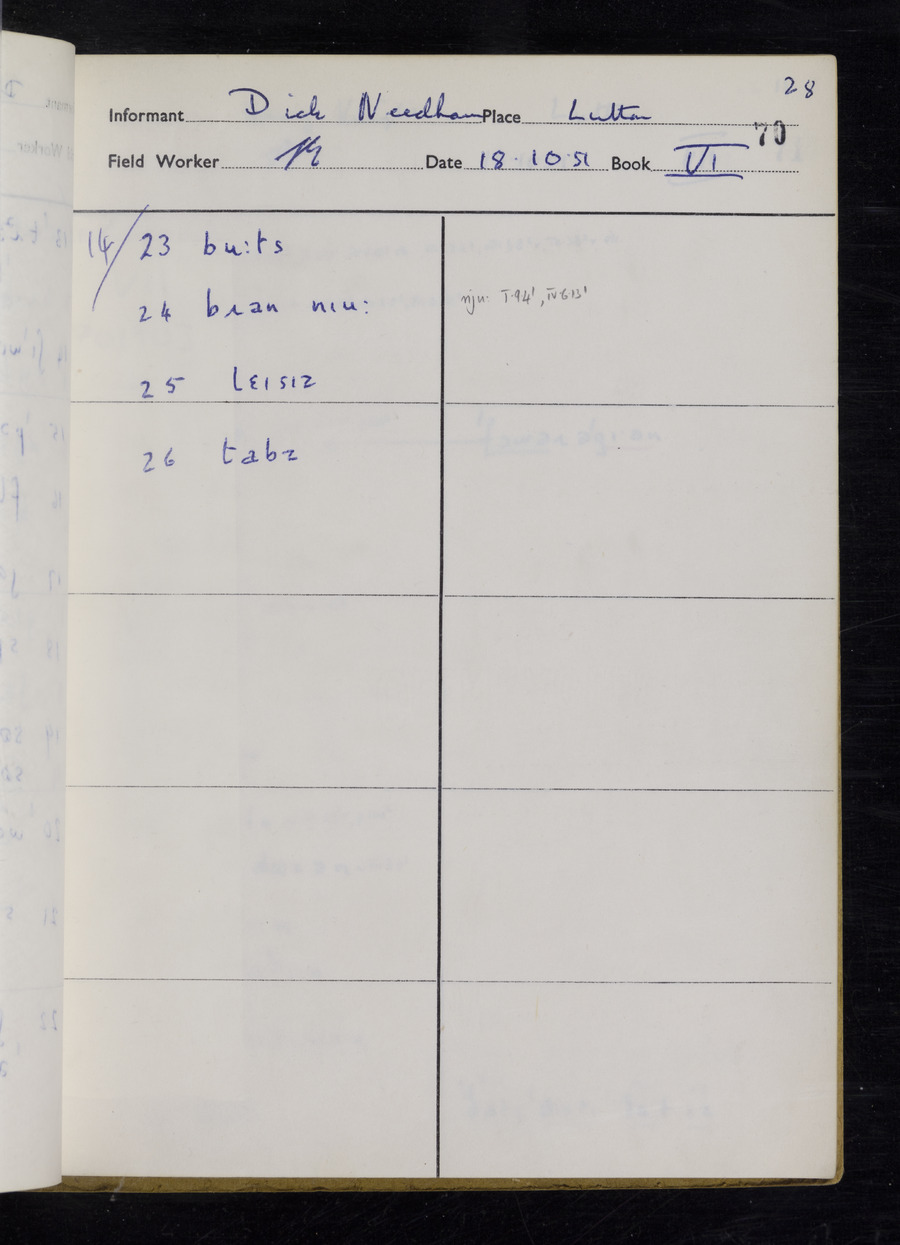 28
Informant Dick Needham Place Lutton
70
Field Worker Date 18·10·51 Book VI
14/ 23 bu:ts
24 bran nɪu: nju· I·94¹, IV·6·13¹
25 lɛɪsɪz
26 tabz